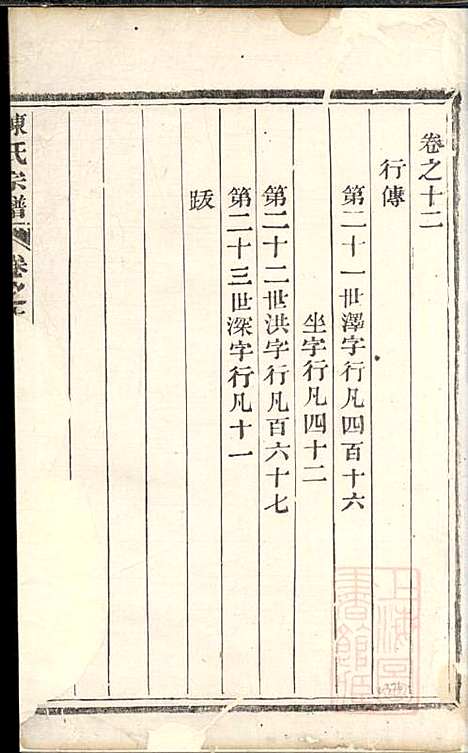 卷之十二
行傳
第二十一世澤字行凡四百十六
坐字行凡四十二
第二十二世洪字行凡百六十七
第二十三世深字行凡十一
跋
陳氏宗譜
卷之